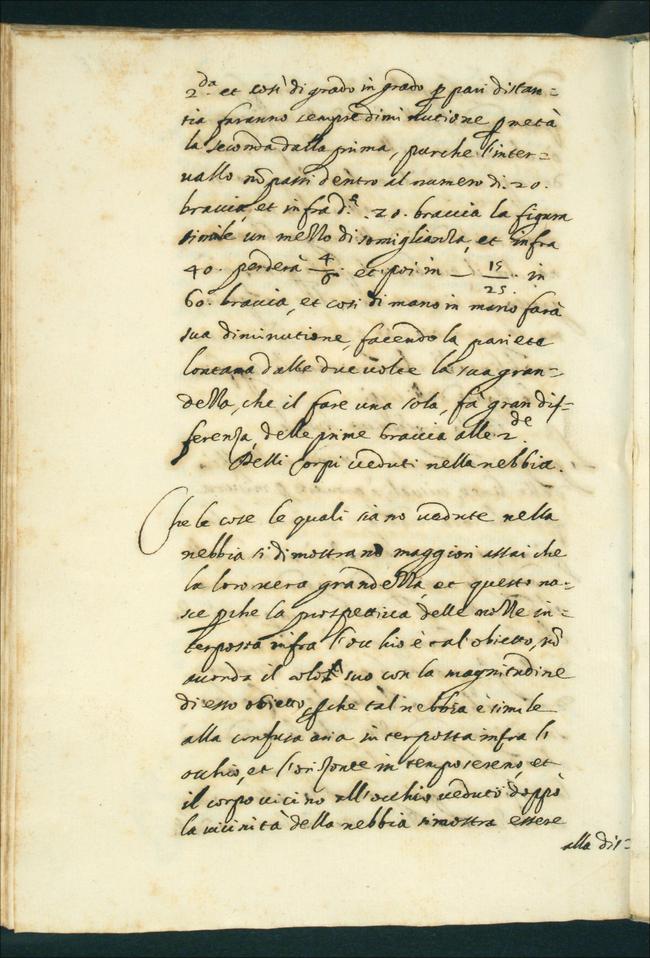 2.da et così di grado in grado p pari distan=
tia faranno sempre diminutione p metà
la seconda dalla prima, purche l'inter=
uallo nõ passi dentro al numero di .20.
braccia, et infra d.e .20. braccia la figura
simile un mezzo di somiglianza, et infra
40. perderà 4/6. et poi in 15/25. in
60. braccia, et così di mano in mano farà
sua diminutione, facendo la pariete
lontana dalle due uolte la sua gran=
dezza, che il fare una sola, fà gran dif=
ferenza delle prime braccia alle 2.de
Delli corpi ueduti nella nebbia.
Che le cose le quali siano uedute nella
nebbia si dimostrano maggiori assai che
la loro uera grandezza, et questo na=
sce pche la prospettiua delle nelle in=
terposta infra l'occhio è tal obietto, nõ
acorda il color suo con la magnitudine
di esso obietto, pche tal nebbia è simile
alla confusa aria interposta infra l'
occhio, et l'orizonte in tempo sereno, et
il corpo uicino all'occhio ueduto doppò
la uicinità della nebbia si mostra essere
alla dis=